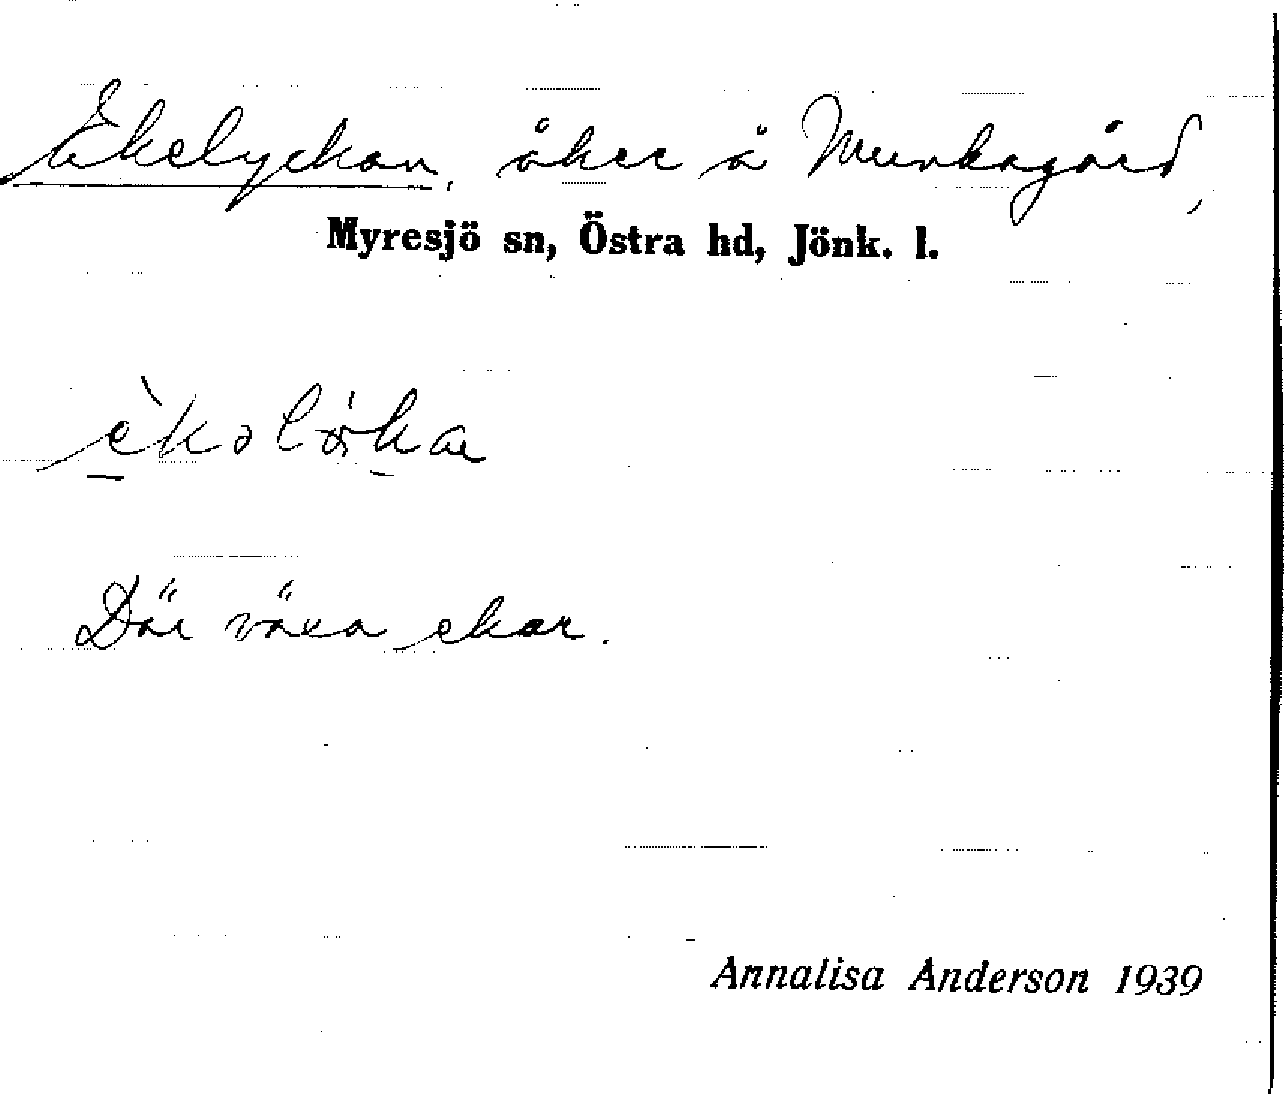 Ekelyckan, åker å Munkagård,
Myresjö sn, Östra hd, Jönk. l.
Där växa ekar.
Annalisa Anderson 1939